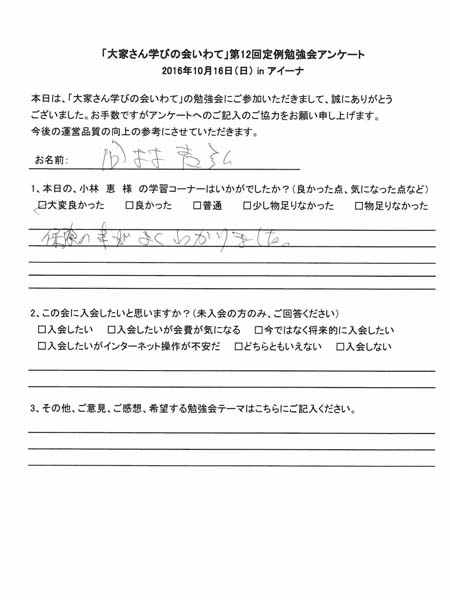 「大家さん学びの会いわて」第12回定例勉強会アンケート
2016年10月16日(日) in アイーナ
本日は、「大家さん学びの会いわて」の勉強会にご参加いただきまして、誠にありがとう
ございました。お手数ですがアンケートへのご記入のご協力をお願い申し上げます。
今後の運営品質の向上の参考にさせていただきます。
お名前:
1、本日の、小林 恵 様 の学習コーナーはいかがでしたか?(良かった点、気になった点など)
□大変良かった □良かった □普通 □少し物足りなかった □物足りなかった
保険の事がよくわかりました。
2、この会に入会したいと思いますか?(未入会の方のみ、ご回答ください)
□入会したい □入会したいが会費が気になる □今ではなく将来的に入会したい
□入会したいがインターネット操作が不安だ □どちらともいえない □入会しない
3、その他、ご意見、ご感想、希望する勉強会テーマはこちらにご記入ください。